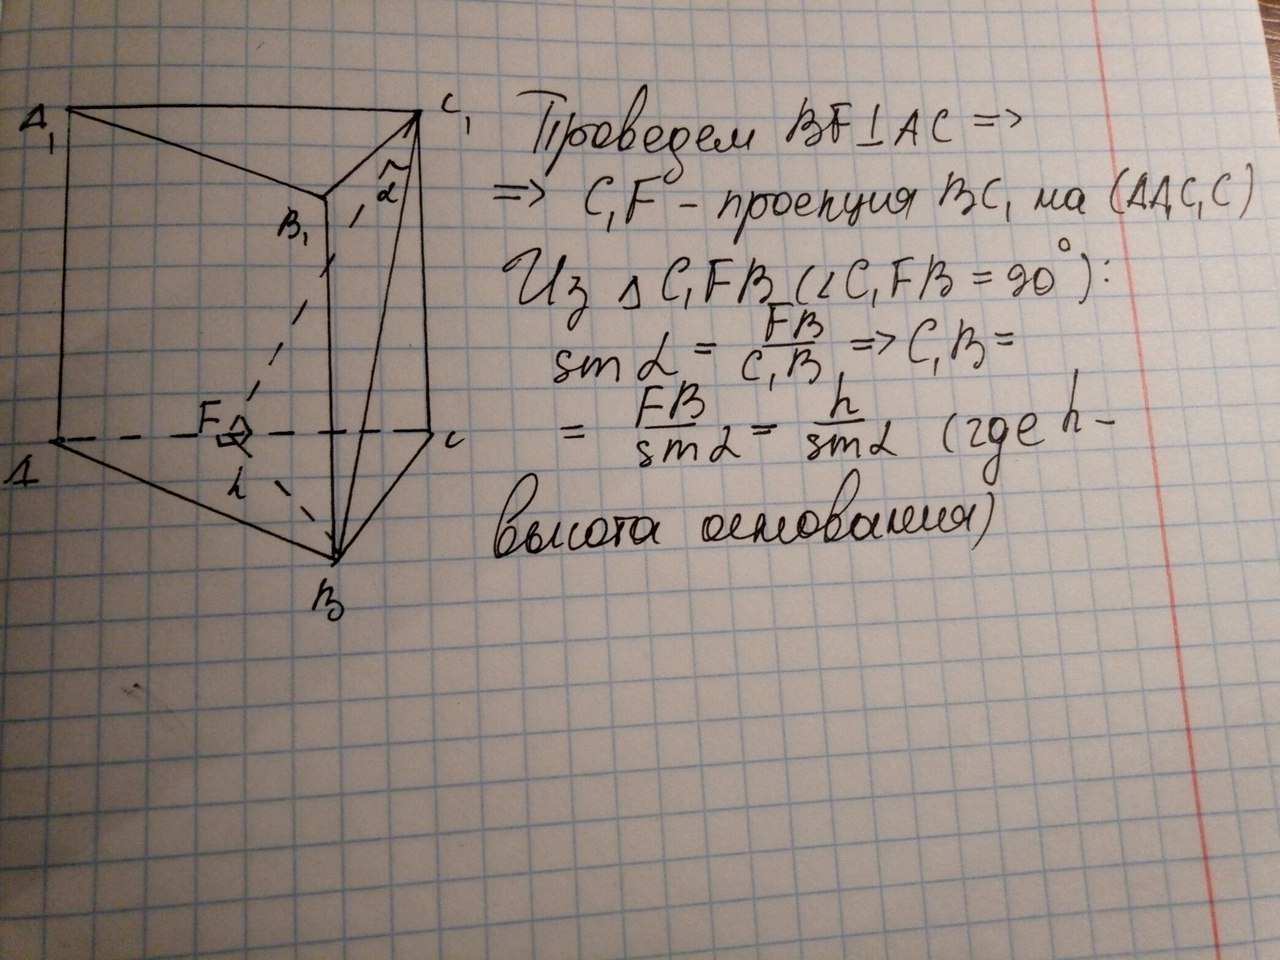 A₁
C₁
α
B₁
F
A
C
h
B
Проведем BF⊥AC =>
=> C₁F - проекция BC₁ на (AA₁C₁C)
Из △C₁FB (∠C₁FB = 90°):
sin α = FB/C₁B => C₁B =
= FB/sin α = h/sin α (где h -
высота основания)